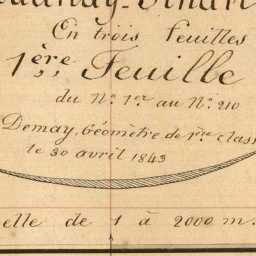 En trois feuilles
1ère Feuille
du N.° 1.er au N.° 210
Demay, Géomètre de 1re class
le 30 avril 1843
elle de 1 à 2000 m.